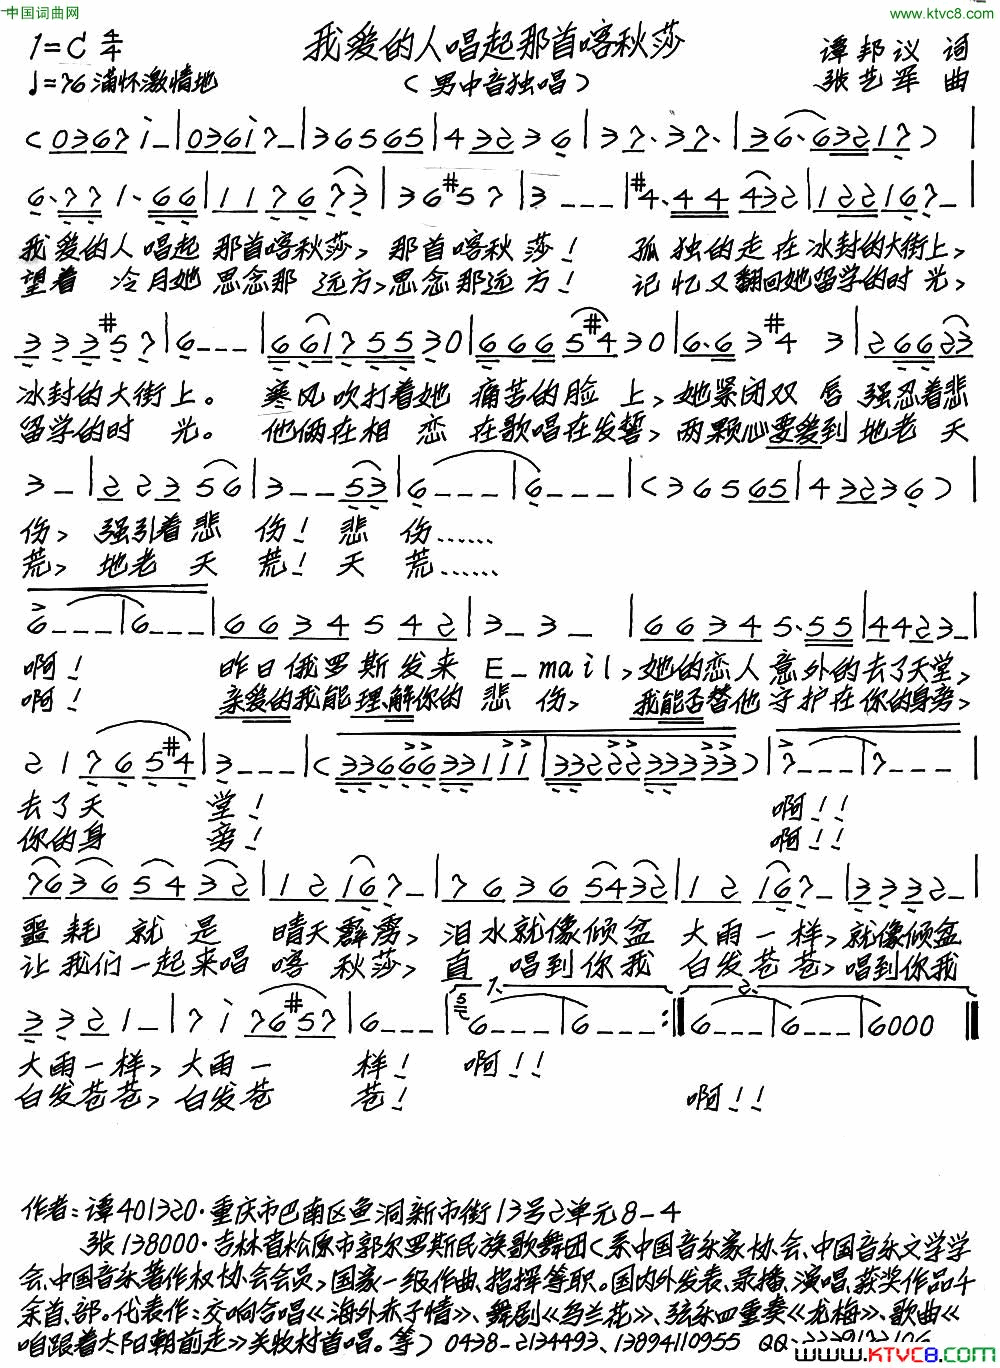 中国词曲网
www.ktvc8.com
我爱的人唱起那首喀秋莎
1=C 4/4
谭邦议 词
♩=76 满怀激情地
(男中音独唱)
张艺军 曲
(0367i－|036i7－|36565|43236|37·37·|36·63217)|
6·771·66|117673|36#57|3－－－|#4·44432|122167－|
我爱的人唱起那首喀秋莎,那首喀秋莎! 孤独的走在冰封的大街上,
望着冷月她思念那远方,思念那远方! 记忆又翻回她留学的时光,
333#57|6－－－|661755530|6665#430|6·63#43|266233
冰封的大街上。寒风吹打着她痛苦的脸上,她紧闭双唇强忍着悲
留学的时光。他俩在相恋在歌唱在发誓,两颗心要爱到地老天
3－|22356|3－－53|6－－－|6－－－|(36565|43236)|
伤,强引着悲伤!悲伤……
荒,地老天荒!天荒……
6－－－|6－－－|6634542|3－3－|66345·55|4423－|
啊! 昨日俄罗斯发来E-mail,她的恋人意外的去了天堂,
啊! 亲爱的我能理解你的悲伤,我能否替他守护在你的身旁,
21765#4|3－－－|(3366633111|3322233333)|7－－－|7－－－|
去了天堂! 啊!!
你的身旁! 啊!!
76365432|12167－|76365432|12167－|3332－|
噩耗就是晴天霹雳,泪水就像倾盆大雨一样,就像倾盆
让我们一起来唱喀秋莎,直唱到你我白发苍苍,唱到你我
3321－|7i76#57|6－－－|6－－－|6－－－:|6－－－|6－－－|6000‖
大雨一样,大雨一样! 啊!!
白发苍苍,白发苍苍! 啊!!
作者:谭401320·重庆市巴南区鱼洞新市街13号2单元8-4
张138000·吉林省松原市郭尔罗斯民族歌舞团(系中国音乐家协会、中国音乐文学学
会、中国音乐著作权协会会员,国家一级作曲、指挥等职。国内外发表、录播、演唱、获奖作品千
余首、部。代表作:交响合唱《海外赤子情》、舞剧《乌兰花》、弦乐四重奏《龙梅》、歌曲《
咱跟着太阳朝前走》关牧村首唱。等)0438-2134493、13894110955 QQ:
www.KTVC8.com